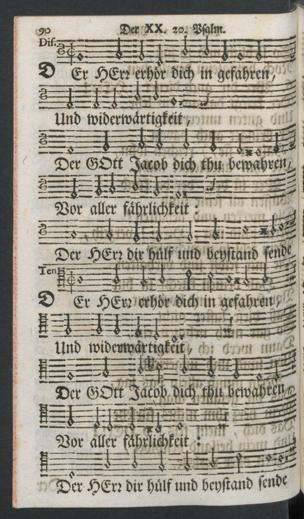 90 Der XX. 20. Psalm.
Dis.
DEr HErr erhör dich in gefahren,
Und widerwärtigkeit,
Der GOtt Jacob dich thu bewahren,
Vor aller fährlichkeit:
Der HErr dir hülf und beystand sende
Ten
DEr HErr erhör dich in gefahren
Und widerwärtigkeit,
Der GOtt Jacob dich thu bewahren
Vor aller fährlichkeit:
Der HErr dir hülf und beystand sende